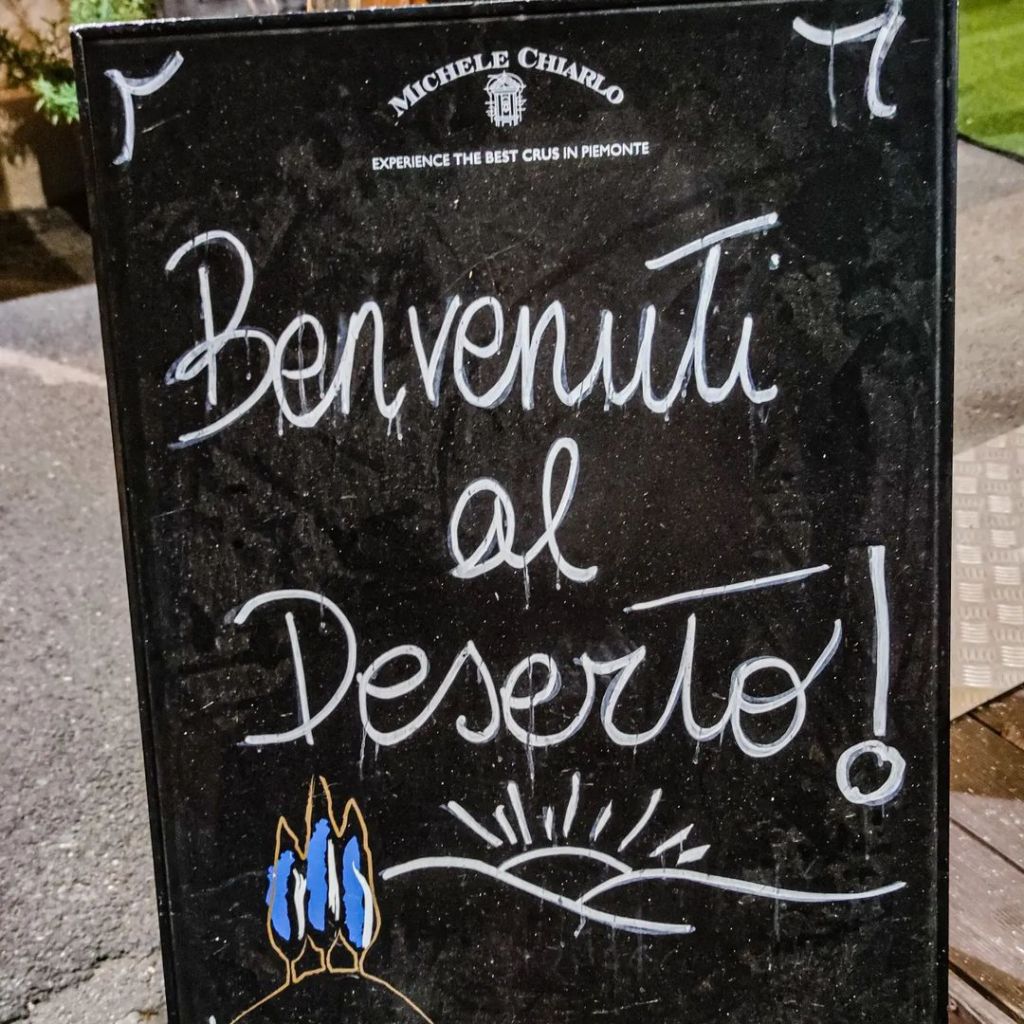 MICHELE CHIARLO
EXPERIENCE THE BEST CRUS IN PIEMONTE
Benvenuti
al
Deserto!